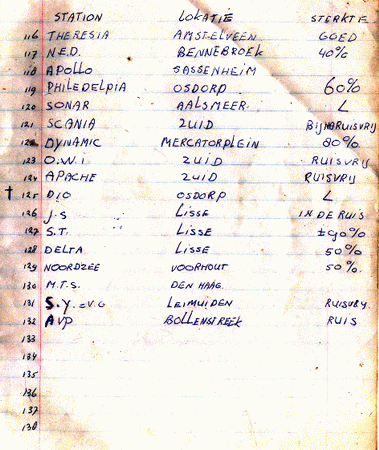 STATION LOKATIË STERKTE
116 THERESIA AMSTELVEEN GOED
117 N.E.D. BENNEBROEK 40%
118 APOLLO SASSENHEIM
119 PHILEDELPIA OSDORP 60%
120 SONAR AALSMEER L
121 SCANIA ZUID BIJNARUISVRIJ
122 DYNAMIC MERCATORPLEIN 80%
123 O.W.I ZUID RUISVRIJ
124 APACHE ZUID RUISVRIJ
† 125 DIO OSDORP L
126 J.S LISSE IN DE RUIS
127 S.T. LISSE ±90%
128 DELTA LISSE 50%
129 NOORDZEE VOORHOUT 50%
130 M.T.S. DEN HAAG
131 S.Y. LEIMUIDEN RUISVRY
132 AVP BOLLENSTREEK RUIS
133
134
135
136
137
138